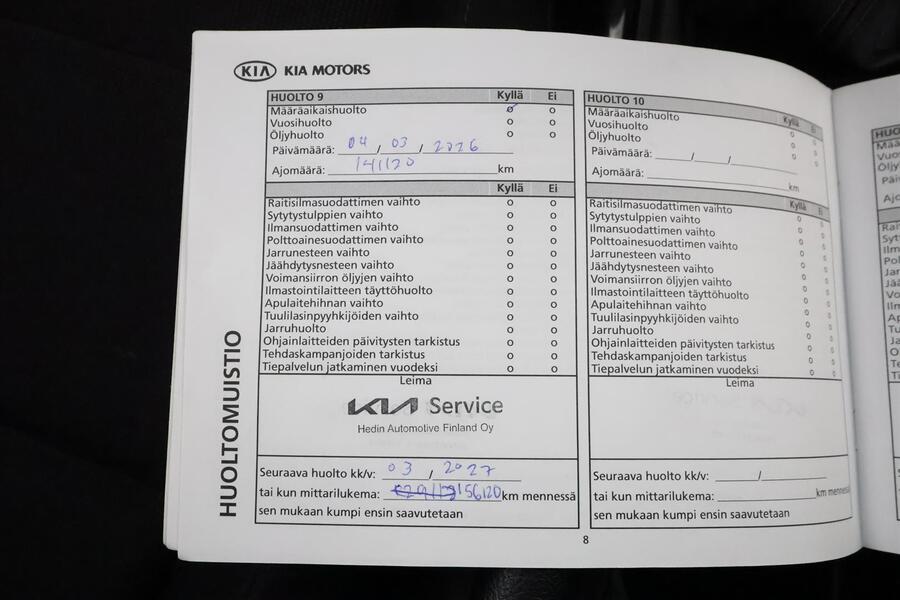 KIA KIA MOTORS
HUOLTO 9 Kyllä Ei
Määräaikaishuolto o o
Vuosihuolto o o
Öljyhuolto o o
Päivämäärä: 04 / 03 / 2026
Ajomäärä: 141120 km
Kyllä Ei
Raitisilmasuodattimen vaihto o o
Sytytystulppien vaihto o o
Ilmansuodattimen vaihto o o
Polttoainesuodattimen vaihto o o
Jarrunesteen vaihto o o
Jäähdytysnesteen vaihto o o
Voimansiirron öljyjen vaihto o o
Ilmastointilaitteen täyttöhuolto o o
Apulaitehihnan vaihto o o
Tuulilasinpyyhkijöiden vaihto o o
Jarruhuolto o o
Ohjainlaitteiden päivitysten tarkistus o o
Tehdaskampanjoiden tarkistus o o
Tiepalvelun jatkaminen vuodeksi o o
Leima
KIA Service
Hedin Automotive Finland Oy
Seuraava huolto kk/v: 03 / 2027
tai kun mittarilukema: 156120 km mennessä
sen mukaan kumpi ensin saavutetaan
HUOLTO 10 Kyllä Ei
Määräaikaishuolto o o
Vuosihuolto o o
Öljyhuolto o o
Päivämäärä: / /
Ajomäärä: km
Kyllä Ei
Raitisilmasuodattimen vaihto o o
Sytytystulppien vaihto o o
Ilmansuodattimen vaihto o o
Polttoainesuodattimen vaihto o o
Jarrunesteen vaihto o o
Jäähdytysnesteen vaihto o o
Voimansiirron öljyjen vaihto o o
Ilmastointilaitteen täyttöhuolto o o
Apulaitehihnan vaihto o o
Tuulilasinpyyhkijöiden vaihto o o
Jarruhuolto o o
Ohjainlaitteiden päivitysten tarkistus o o
Tehdaskampanjoiden tarkistus o o
Tiepalvelun jatkaminen vuodeksi o o
Leima
Seuraava huolto kk/v: /
tai kun mittarilukema: km mennessä
sen mukaan kumpi ensin saavutetaan
HUOLTOMUISTIO
8